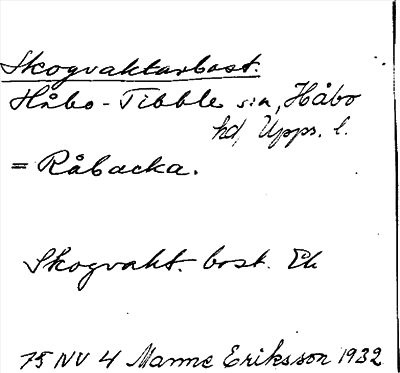 Skogvaktarbost.
Håbo-Tibble sn, Håbo
hd, Upps. l.
= Råbacka.
Skogvakt. bost. Ek
75 NV 4 Manne Eriksson 1932